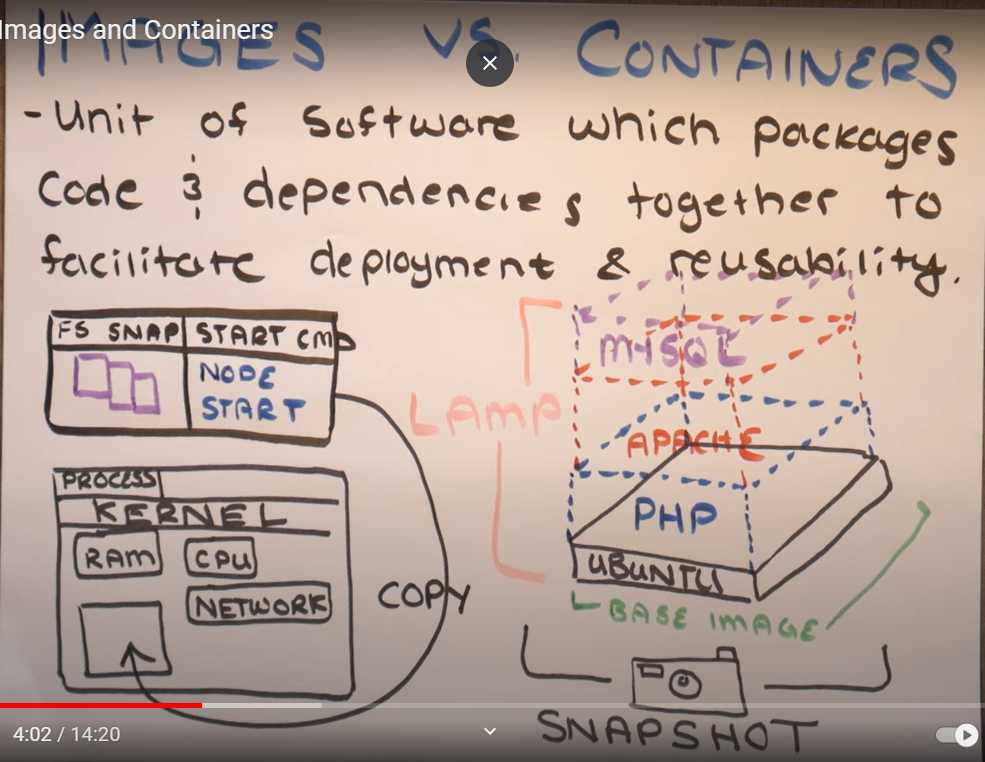 Images and Containers
IMAGES VS. CONTAINERS
- Unit of software which packages
Code & dependencies together to
facilitate deployment & reusability.
FS SNAP START CMD
NODE
START
PROCESS
KERNEL
RAM CPU
NETWORK
COPY
LAMP
MYSQL
APACHE
PHP
UBUNTU
BASE IMAGE
SNAPSHOT
4:02 / 14:20